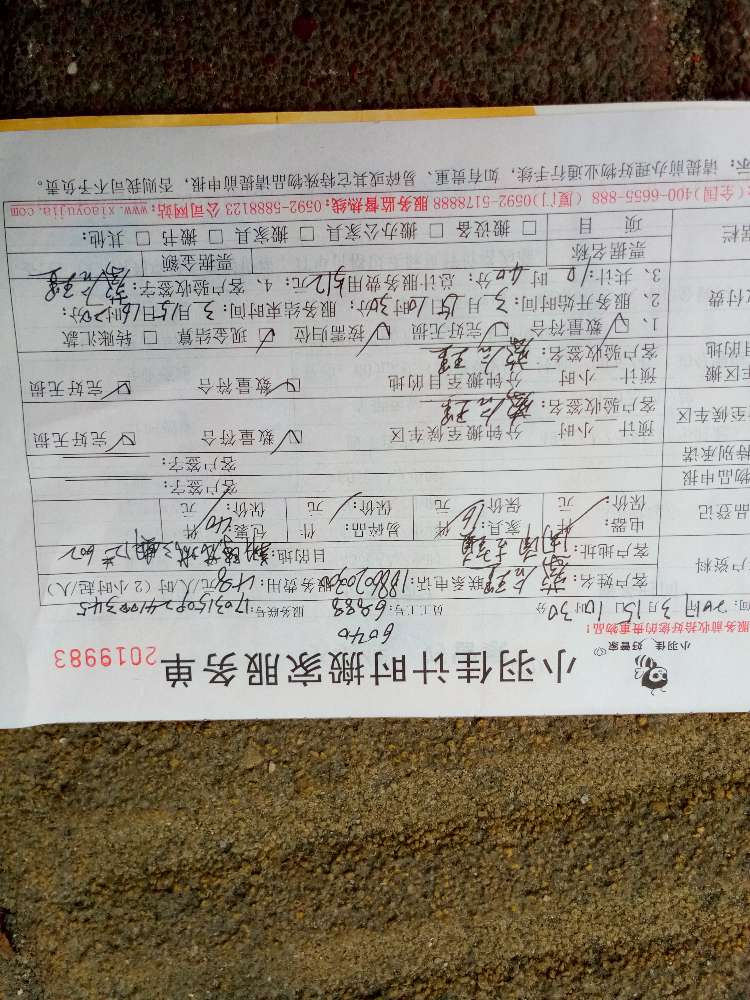 小羽佳 好管家
小羽佳计时搬家服务单 2019983
服务前收拾好您的贵重物品!
6040
间: 2017年3月15日10时30分 员工工号: 6888 服务账号: 170315092410034
户资料 客户姓名: 联系电话: 服务费用: 48元/人/时 (2小时起/人)
客户地址: 目的地:
品登记 电器: 件 家具: 16件 易碎品: 件 包装: 40件
保价: 元 保价: 元 保价: 元 保价: 元
物品申报 客户签字:
特别承诺 客户签字:
至候车区 预计 小时 分钟搬至候车区 数量符合 完好无损
客户验收签名:
车区搬 预计 小时 分钟搬至目的地 数量符合 完好无损
目的地 客户验收签名:
1、数量符合 完好无损 按需归位 现金结算 转账汇款
付费 2、服务开始时间: 3月15日10时30分; 服务结束时间: 3月15日16时20分;
3、共计: 10时40分; 总计服务费用512元; 4、客户签字:
据栏 票据名称 票据金额
项目 搬设备 搬办公家具 搬家具 搬书 其他:
(全国)400-6655-888 (厦门)0592-5178888 服务监督热线: 0592-5888123 公司网站: www.xiaoyujia.com
示: 请提前办理好物业通行手续, 如有贵重、易碎或其它特殊物品请提前申报, 否则我司不予负责。